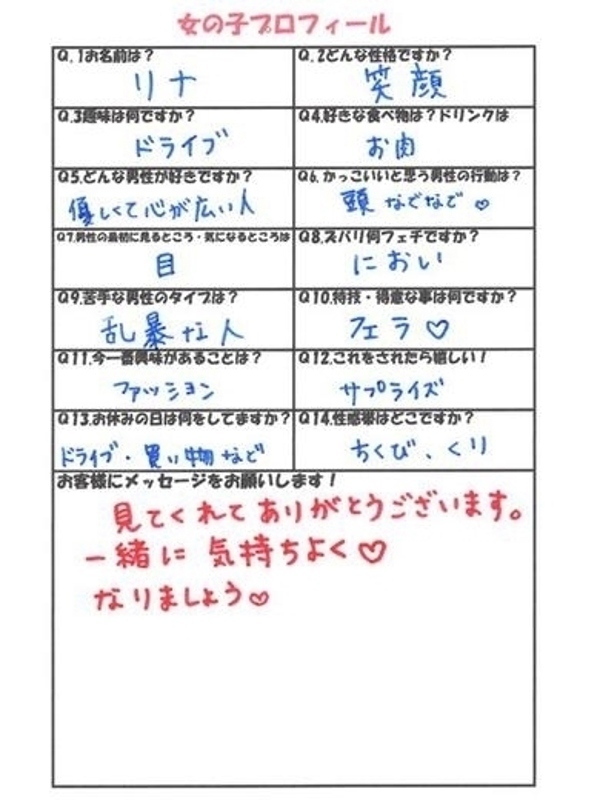 女の子プロフィール
Q.1お名前は？
リナ
Q.2どんな性格ですか？
笑顔
Q.3趣味は何ですか？
ドライブ
Q4.好きな食べ物は？ドリンクは
お肉
Q5.どんな男性が好きですか？
優しくて心が広い人
Q6.かっこいいと思う男性の行動は？
頭なでなで♡
Q7.男性の最初に見るところ・気になるところは
目
Q8.ズバリ何フェチですか？
におい
Q9.苦手な男性のタイプは？
乱暴な人
Q10.特技・得意な事は何ですか？
フェラ♡
Q11.今一番興味があることは？
ファッション
Q12.これをされたら嬉しい！
サプライズ
Q13.お休みの日は何をしてますか？
ドライブ・買い物など
Q14.性感帯はどこですか？
ちくび、くり
お客様にメッセージをお願いします！
見てくれてありがとうございます。
一緒に気持ちよく♡
なりましょう♡